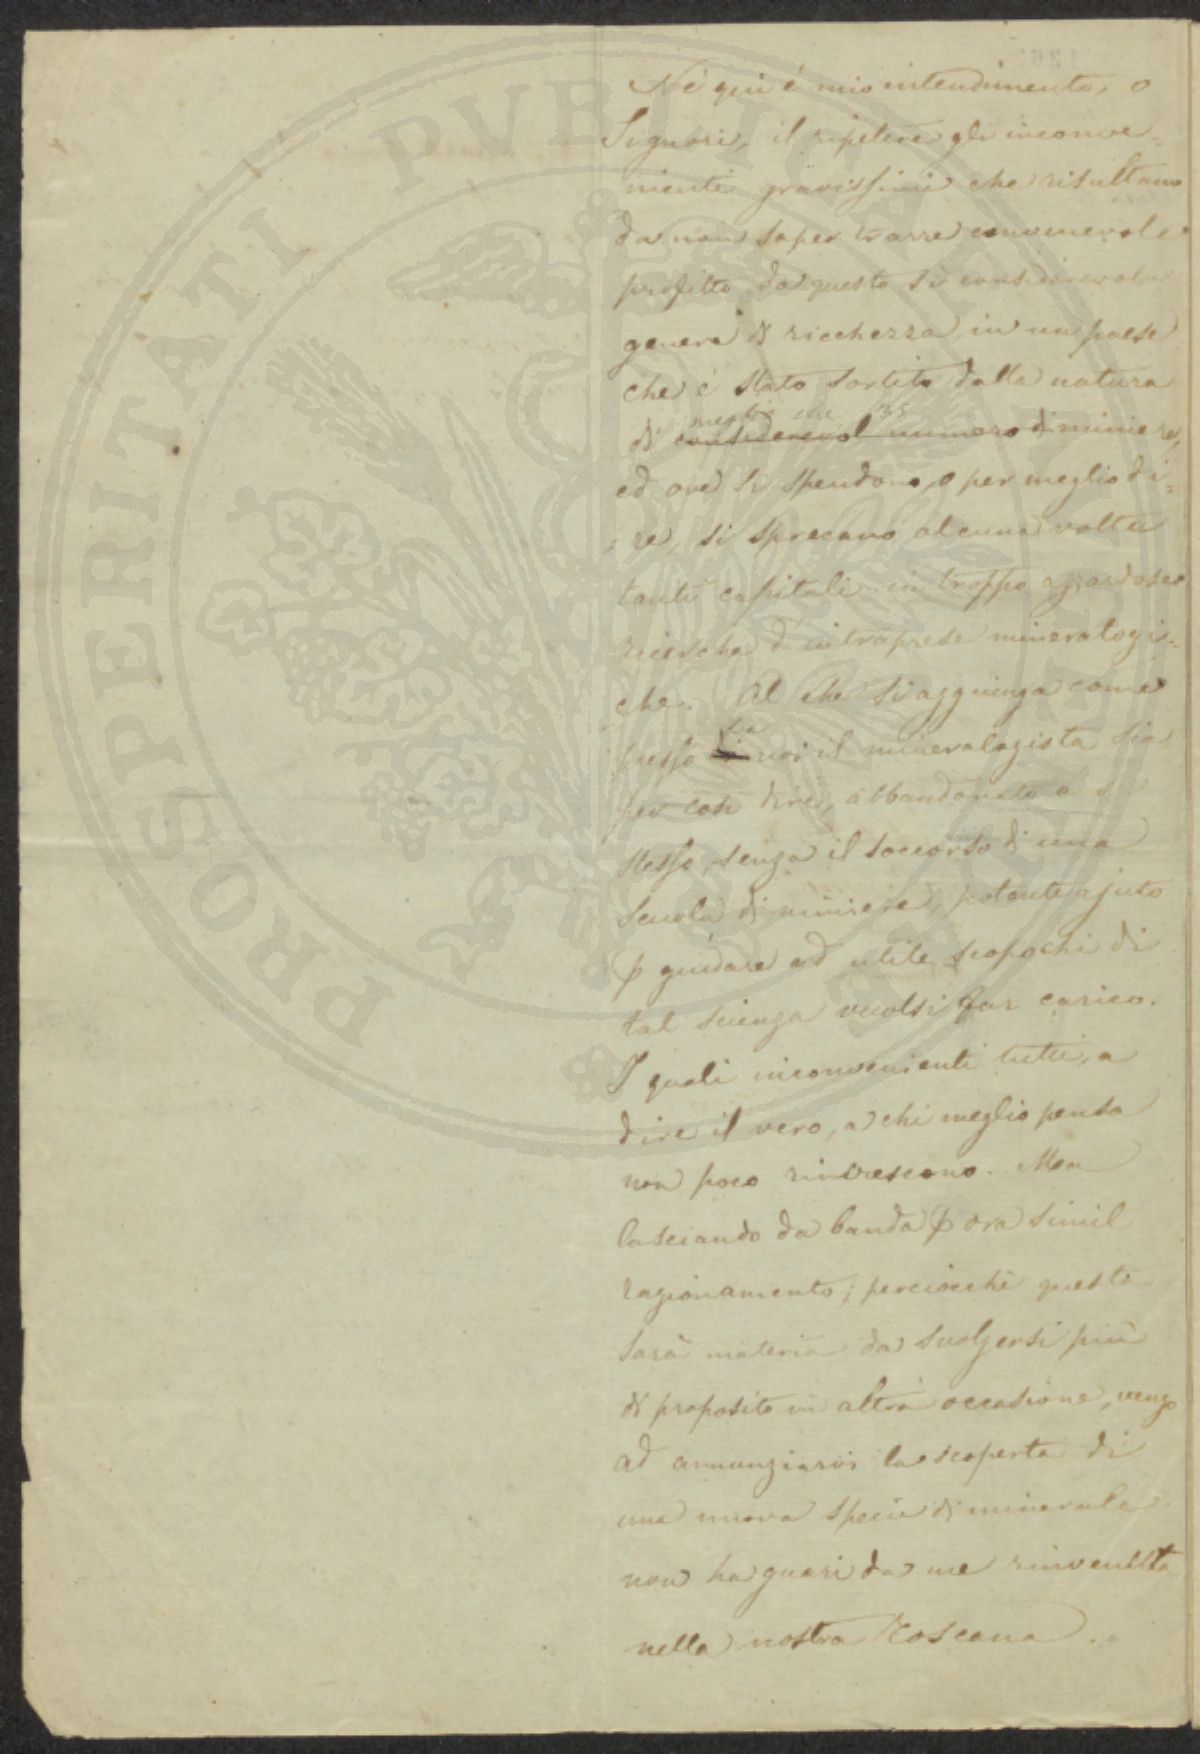 Nè qui è mio intendimento, o
Signori, il ripetere gli inconve-
nienti gravissimi che risultano
da non saper trarre convenevole
profitto da questo sì considerevole
genere di ricchezza in un paese
che è stato sortito dalla natura
meglio che 35
di considerevol numero di miniere,
ed ove si spendono, o per meglio di-
re, si sprecano alcuna volta
tanti capitali in troppo azzardose
ricerche d'intraprese mineralogi-
che. Al che si aggiunga come
presso di noi il mineralogista sia
per così dire, abbandonato a sè
stesso, senza il soccorso di una
scuola di miniere, potente ajuto
p guidare ad utile scopo chi di
tal scienza vuolsi far carico.
I quali inconvenienti tutti, a
dire il vero, a chi meglio pensa
non poco rincrescono. Ma
lasciando da banda p ora simil
ragionamento; perciocchè questa
sarà materia da svolgersi più
di proposito in altra occasione, vengo
ad annunziarvi la scoperta di
una nuova specie di minerale
non ha guari da me rinvenuta
nella nostra Toscana.
PROSPERITATI PUBLICAE AUGENDAE